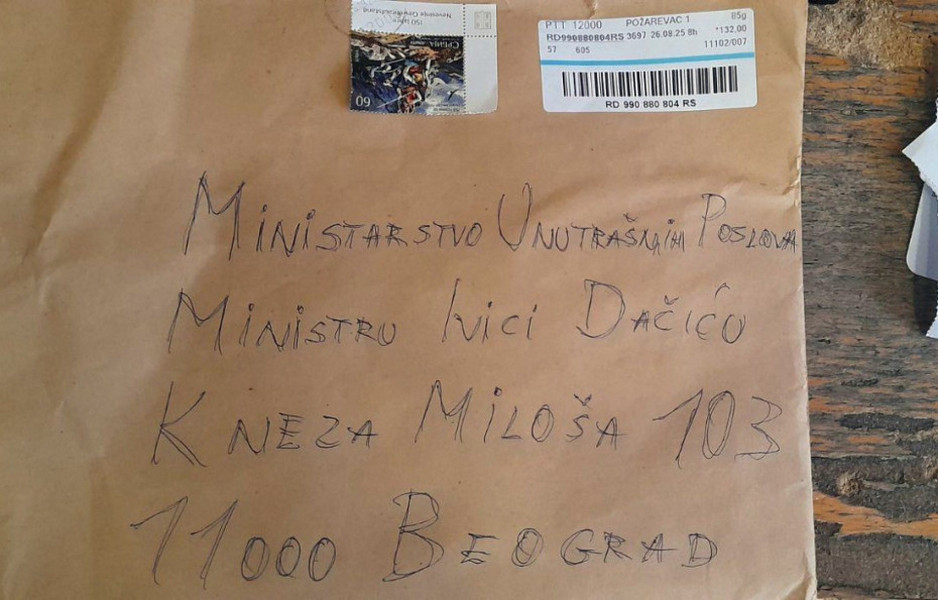 150 Jahre
СРБИЈА
60
PTT 12000 POŽAREVAC 1 85g
RD990880804RS 3697 26.08.25 8h *132.00
57 605 11102/007
RD 990 880 804 RS
MINISTARSTVO UNUTRAŠNJIH POSLOVA
MINISTRU IVICI DAČIĆU
KNEZA MILOŠA 103
11000 BEOGRAD